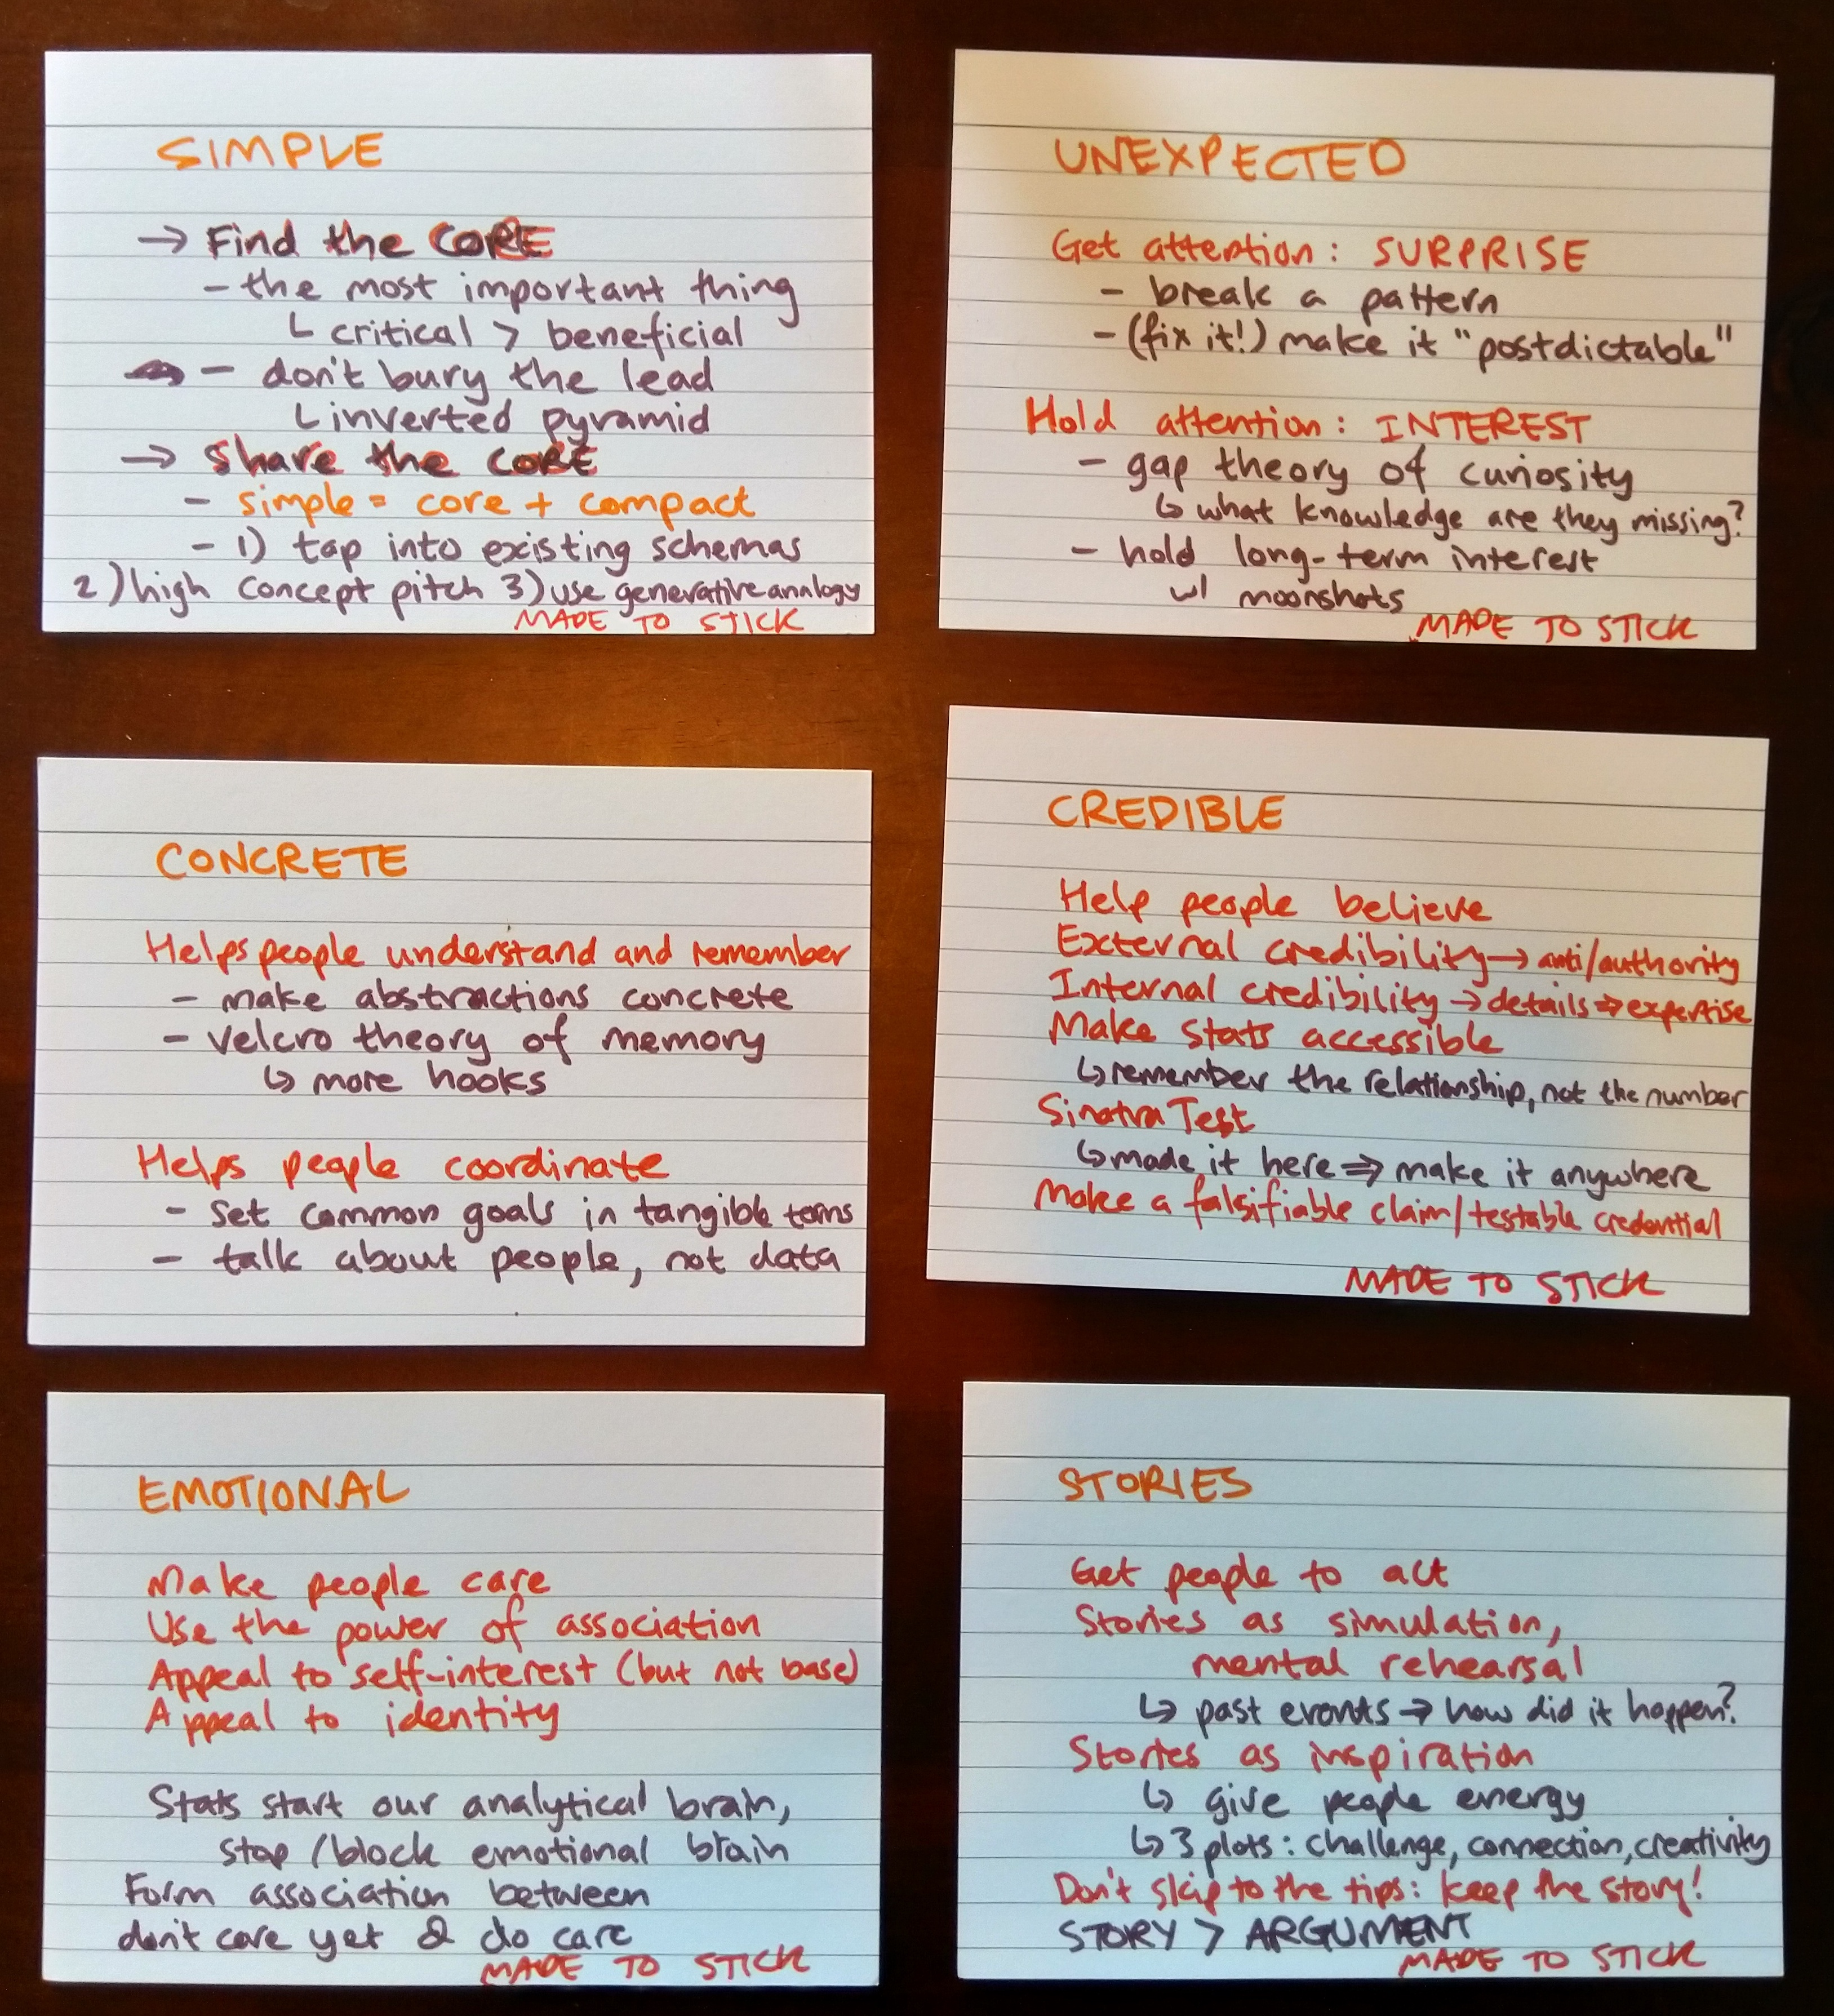 SIMPLE
→ Find the CORE
- the most important thing
└ critical > beneficial
- don't bury the lead
└ inverted pyramid
→ Share the CORE
- simple = core + compact
- 1) tap into existing schemas
2) high concept pitch 3) use generative analogy
MADE TO STICK
UNEXPECTED
Get attention: SURPRISE
- break a pattern
- (fix it!) make it "postdictable"
Hold attention: INTEREST
- gap theory of curiosity
↳ what knowledge are they missing?
- hold long-term interest
w/ moonshots
MADE TO STICK
CONCRETE
Helps people understand and remember
- make abstractions concrete
- velcro theory of memory
↳ more hooks
Helps people coordinate
- set common goals in tangible terms
- talk about people, not data
CREDIBLE
Help people believe
External credibility → anti/authority
Internal credibility → details ⇒ expertise
Make stats accessible
↳ remember the relationship, not the number
Sinatra Test
↳ made it here ⇒ make it anywhere
Make a falsifiable claim/testable credential
MADE TO STICK
EMOTIONAL
Make people care
Use the power of association
Appeal to self-interest (but not base)
Appeal to identity
Stats start our analytical brain,
stop/block emotional brain
Form association between
don't care yet & do care
MADE TO STICK
STORIES
Get people to act
Stories as simulation,
mental rehearsal
↳ past events → how did it happen?
Stories as inspiration
↳ give people energy
↳ 3 plots: challenge, connection, creativity
Don't skip to the tips: keep the story!
STORY > ARGUMENT
MADE TO STICK